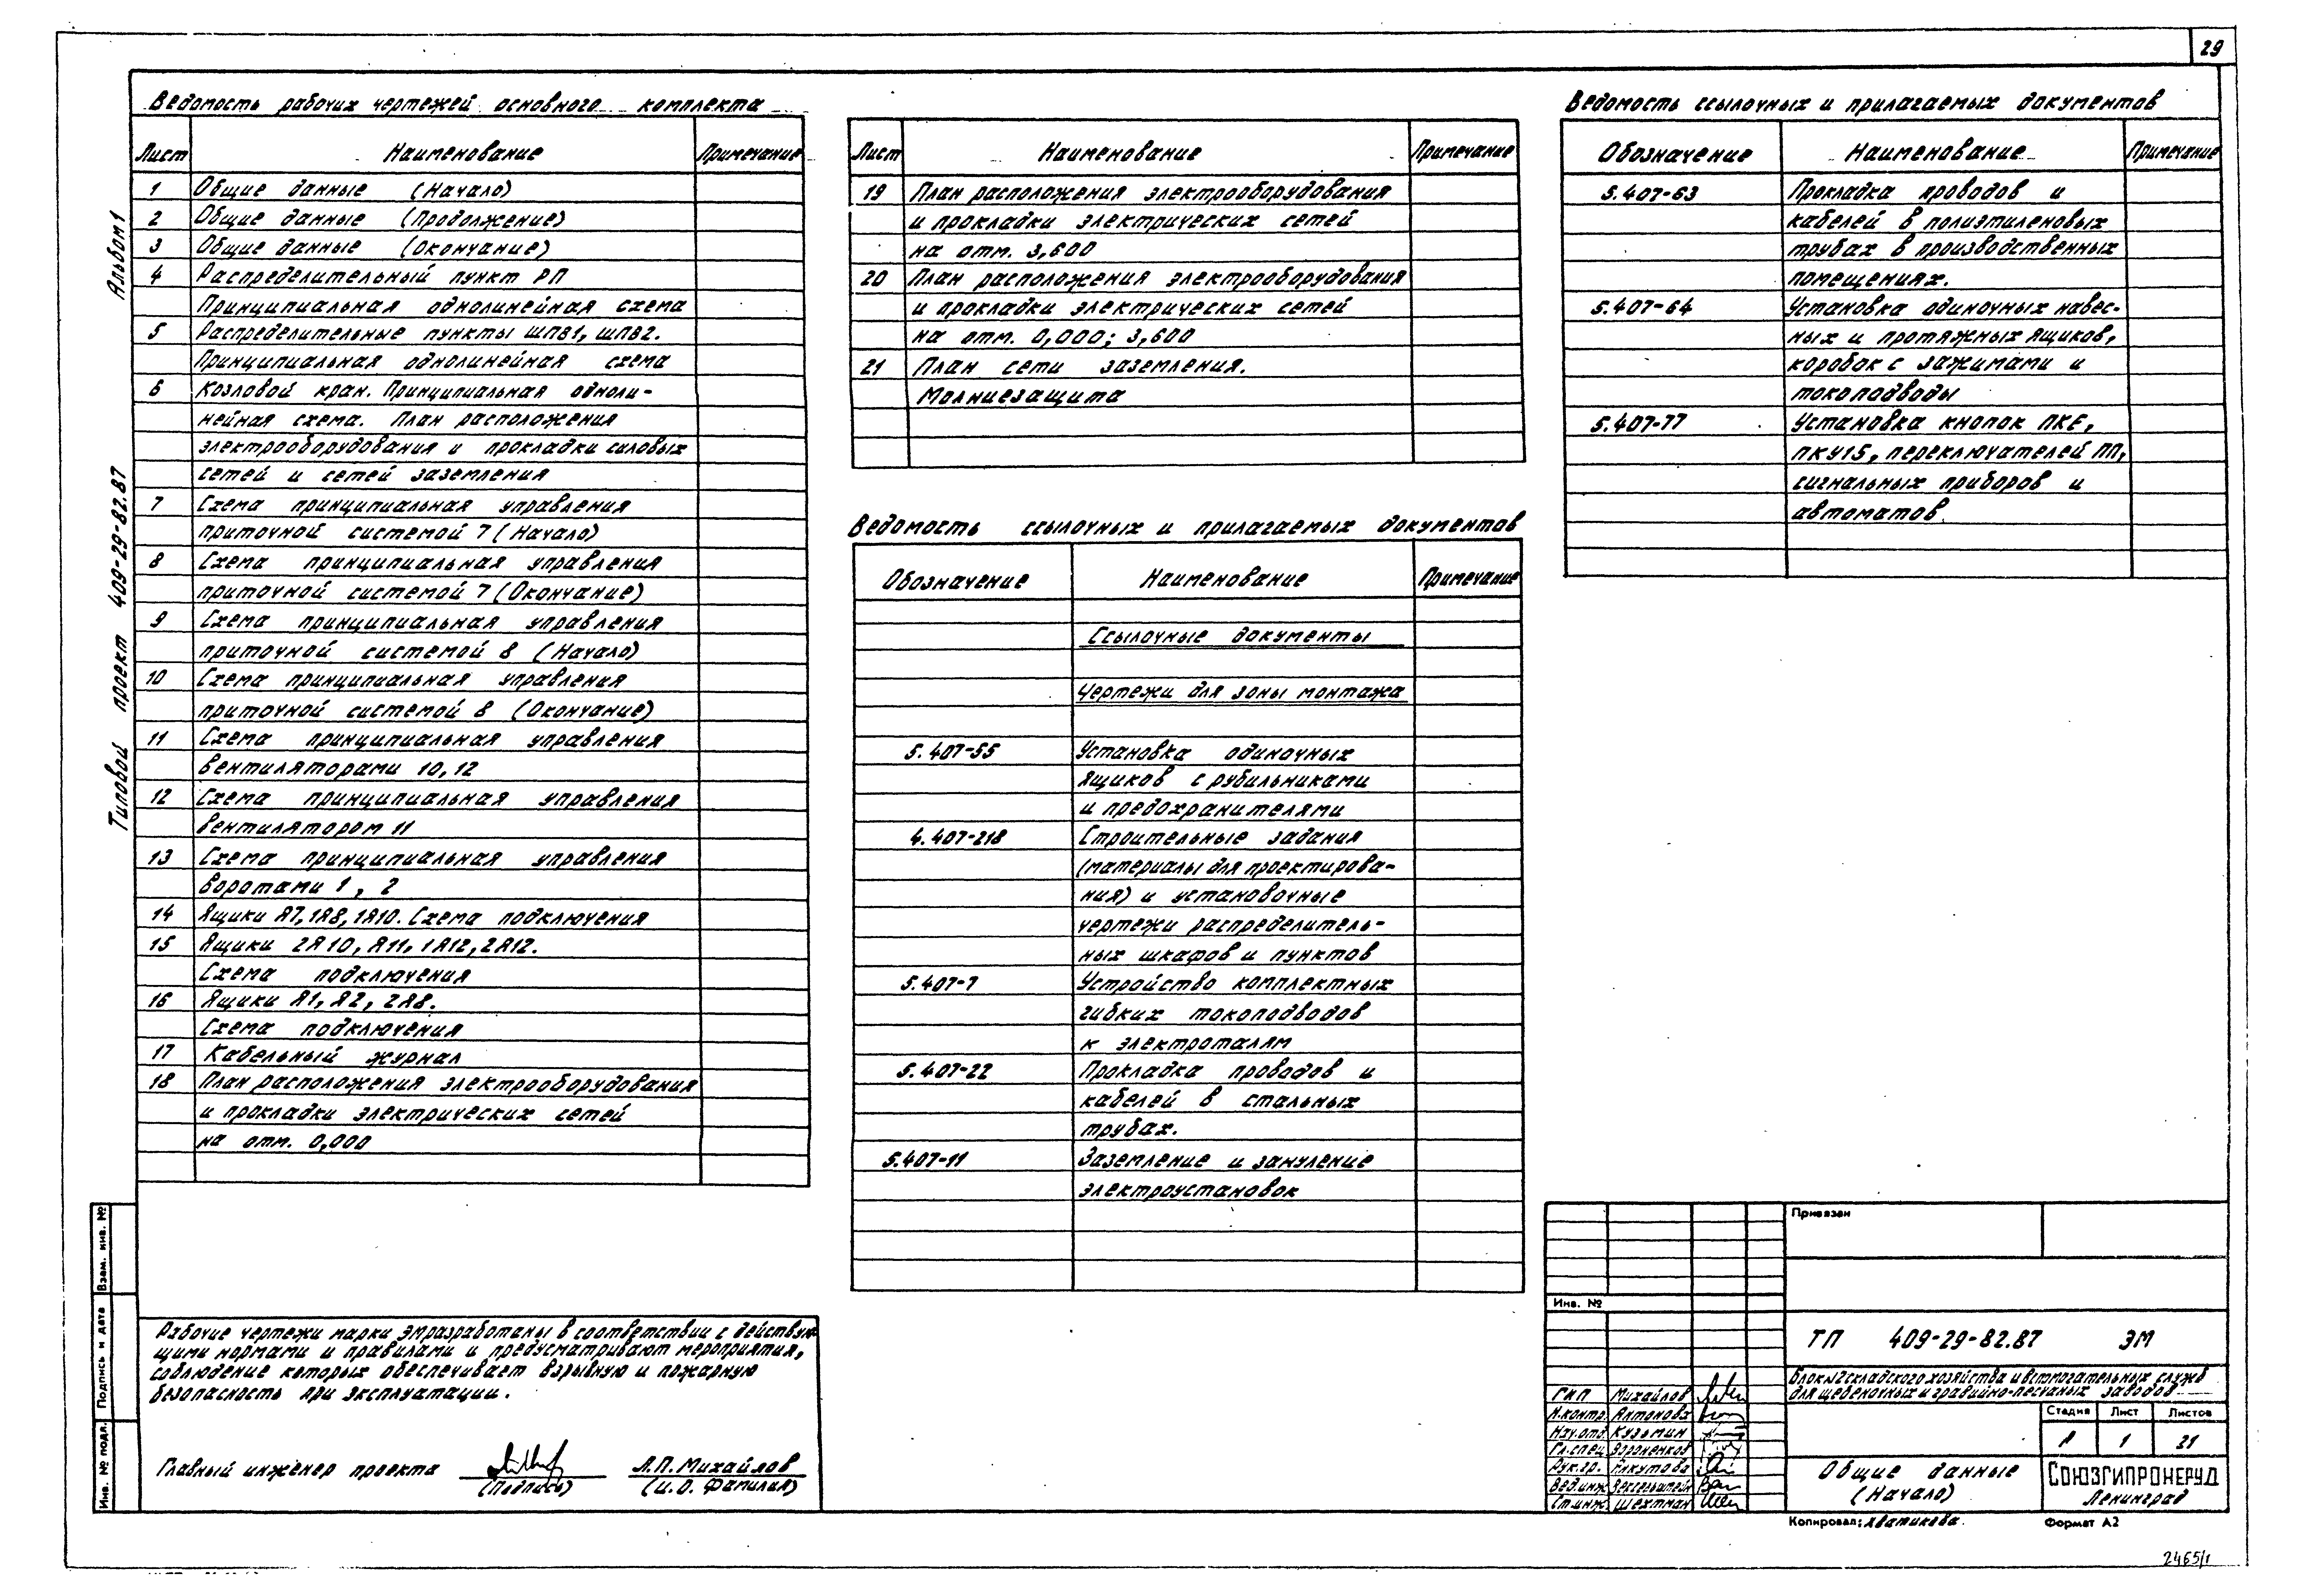 29
Альбом 1
Типовой проект 409-29-82.87
Ведомость рабочих чертежей основного комплекта
Лист Наименование Примечание
1 Общие данные (Начало)
2 Общие данные (Продолжение)
3 Общие данные (Окончание)
4 Распределительный пункт РП
Принципиальная однолинейная схема
5 Распределительные пункты ШП81, ШП82.
Принципиальная однолинейная схема
6 Козловой кран. Принципиальная одноли-
нейная схема. План расположения
электрооборудования и прокладки силовых
сетей и сетей заземления
7 Схема принципиальная управления
приточной системой 7 (Начало)
8 Схема принципиальная управления
приточной системой 7 (Окончание)
9 Схема принципиальная управления
приточной системой 8 (Начало)
10 Схема принципиальная управления
приточной системой 8 (Окончание)
11 Схема принципиальная управления
вентиляторами 10, 12
12 Схема принципиальная управления
вентилятором 11
13 Схема принципиальная управления
воротами 1, 2
14 Ящики Я7, 1Я8, 1Я10. Схема подключения
15 Ящики 2Я10, Я11, 1Я12, 2Я12.
Схема подключения
16 Ящики Я1, Я2, 2Я8.
Схема подключения
17 Кабельный журнал
18 План расположения электрооборудования
и прокладки электрических сетей
на отм. 0,000
Лист Наименование Примечание
19 План расположения электрооборудования
и прокладки электрических сетей
на отм. 3,600
20 План расположения электрооборудования
и прокладки электрических сетей
на отм. 0,000; 3,600
21 План сети заземления.
Молниезащита
Ведомость ссылочных и прилагаемых документов
Обозначение Наименование Примечание
Ссылочные документы
Чертежи для зоны монтажа
5.407-55 Установка одиночных
ящиков с рубильниками
и предохранителями
4.407-218 Строительные задания
(материалы для проектирова-
ния) и установочные
чертежи распределитель-
ных шкафов и пунктов
5.407-7 Устройство комплектных
гибких токоподводов
к электроталям
5.407-22 Прокладка проводов и
кабелей в стальных
трубах.
5.407-11 Заземление и зануление
электроустановок
Ведомость ссылочных и прилагаемых документов
Обозначение Наименование Примечание
5.407-63 Прокладка проводов и
кабелей в полиэтиленовых
трубах в производственных
помещениях.
5.407-64 Установка одиночных навес-
ных и протяжных ящиков,
коробок с зажимами и
токоподводы
5.407-77 Установка кнопок ПКЕ,
ПКУ15, переключателей ПП,
сигнальных приборов и
автоматов
Рабочие чертежи марки ЭМ разработаны в соответствии с действую-
щими нормами и правилами и предусматривают мероприятия,
соблюдение которых обеспечивает взрывную и пожарную
безопасность при эксплуатации.
Главный инженер проекта А.П. Михайлов
(Подпись) (И.О. Фамилия)
Взам. инв. №
Подпись и дата
Инв. № подл.
Привязан
Инв. №
ТП 409-29-82.87 ЭМ
Блок №2 складского хозяйства и вспомогательных служб
для щебеночных и гравийно-песчаных заводов
ГИП Михайлов
Н.контр. Антонова
Нач.отд Кузьмин
Гл.спец Вороненков
Рук.гр.
Вед.инж
Ст.инж. Шехтман
Стадия Лист Листов
Р 1 21
Общие данные
(Начало)
СОЮЗГИПРОНЕРУД
Ленинград
Копировал: Хватикова.
Формат А2
2465/1